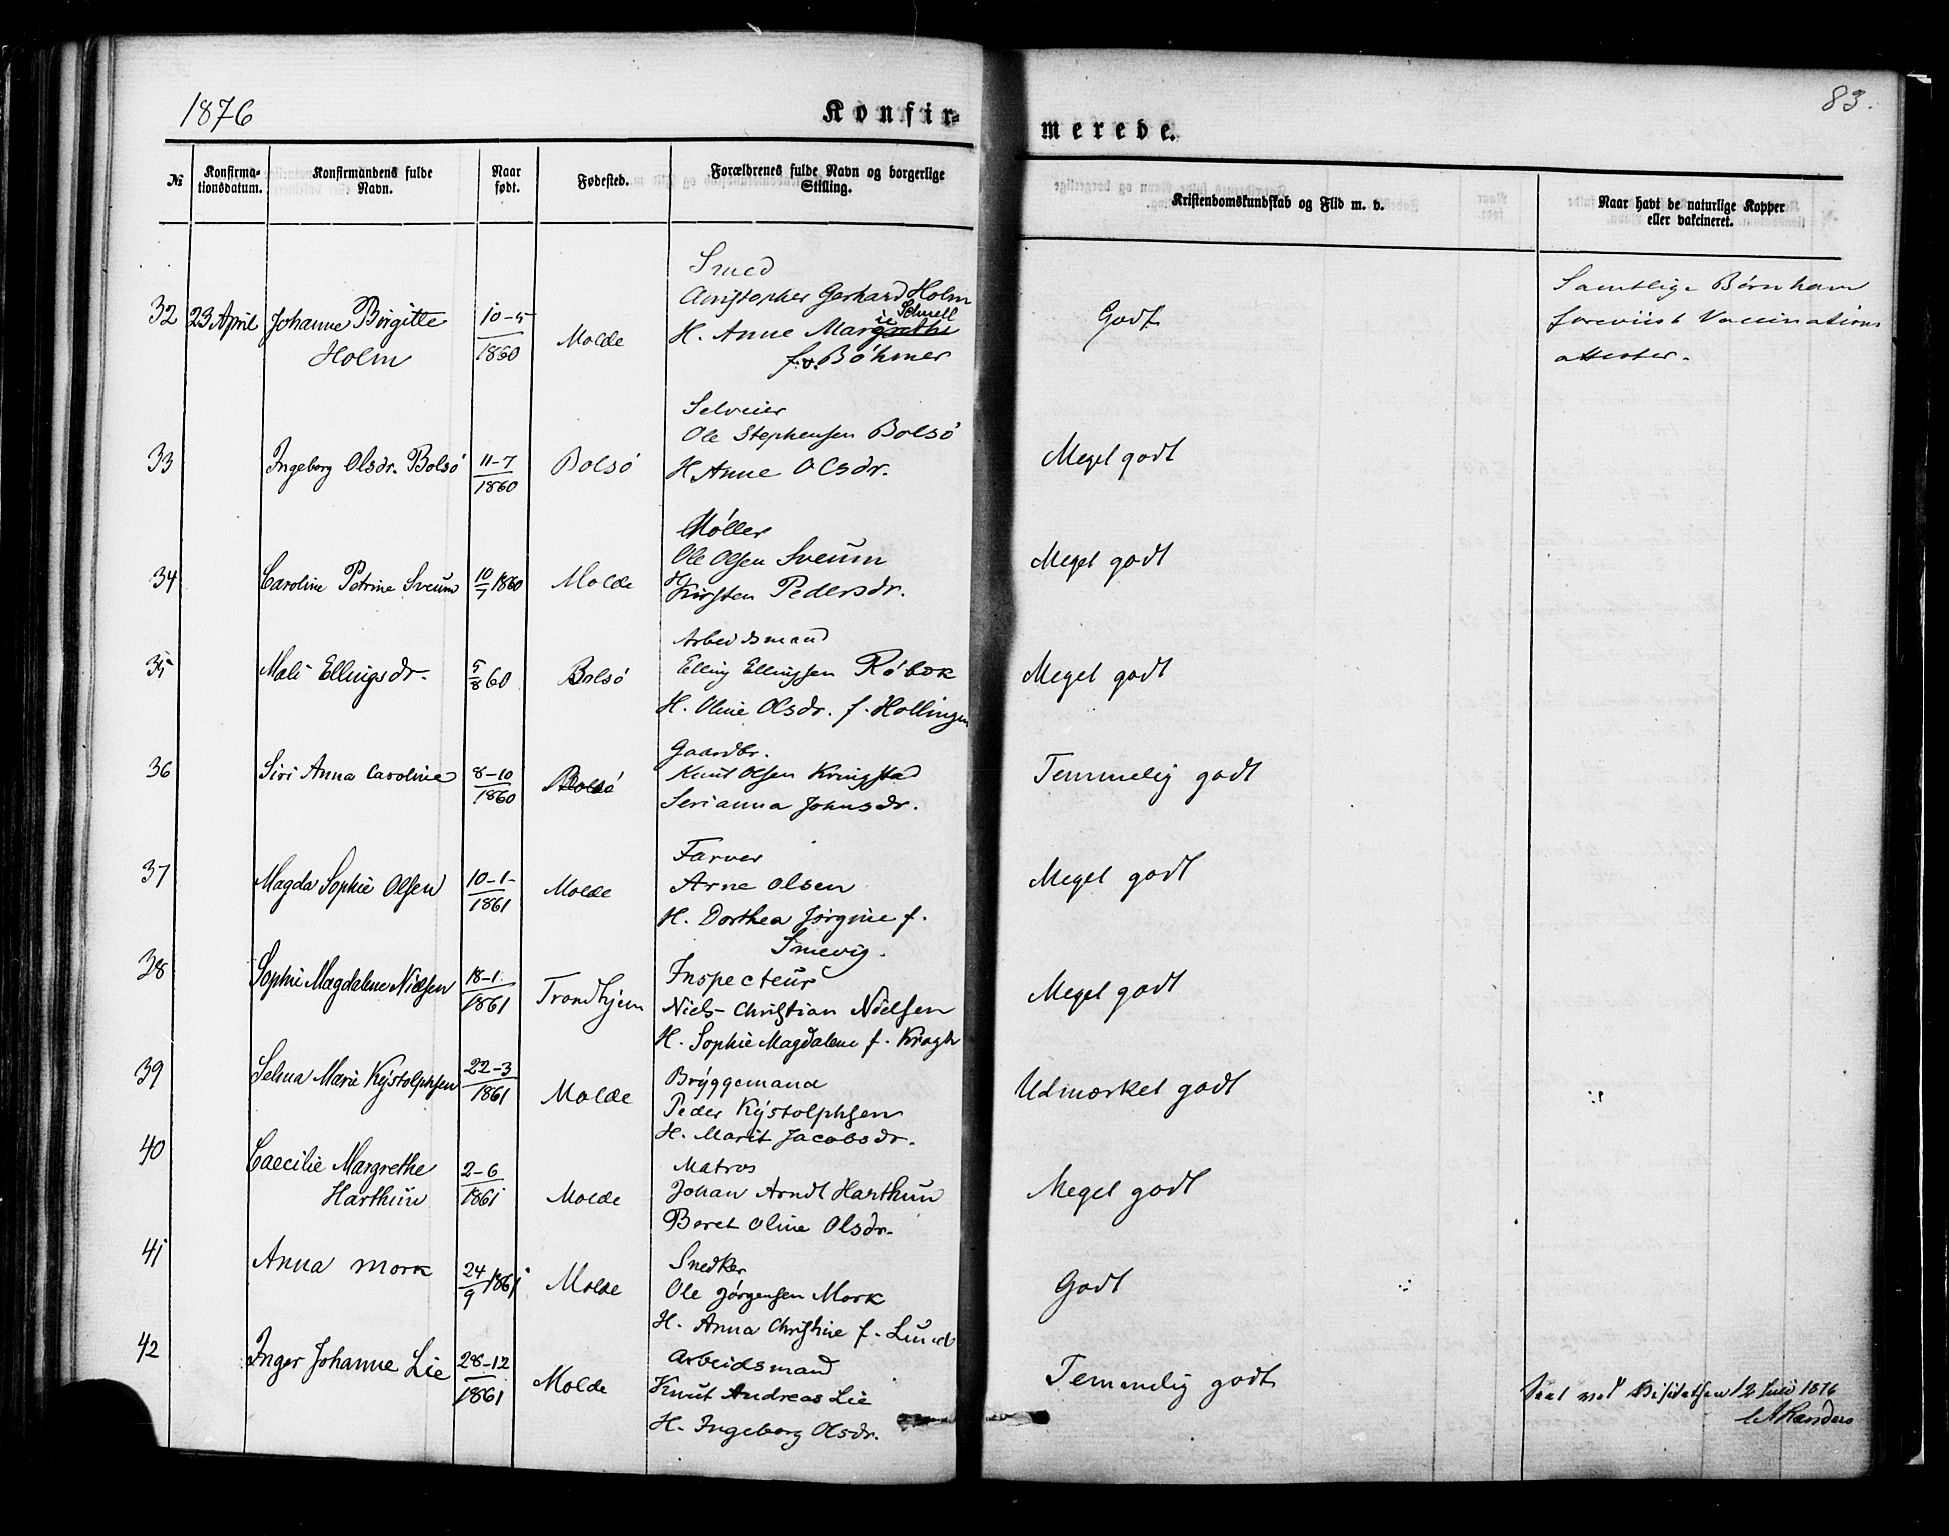 1876
Konfir-
merede.
83.
№
Konfirma-
tionsdatum.
Konfirmandens fulde
Navn.
Naar
født.
Fødested.
Forældrenes fulde Navn og borgerlige
Stilling.
Kristendomskundskab og Flid m. v.
Naar havt de naturlige Kopper
eller vakcineret.
32 23 April Johanne Birgitte
Holm
10-5
1860
Molde
Smed
Christopher Gerhard Holm
Schnell
H. Anne Margrethe
f. v. Bóhmer
Godt
Samtlige Børn ham
foreviist Vaccinations
attester.
33 Ingeborg Olsdr. Bolsó
11-7
1860
Bolsó
Selveier
Ole Stephensen Bolsó
H Anne Olsdr.
Meget godt
34 Caroline Petrine Sveum
10/7 1860
Molde
Móller
Ole Olsen Sveum
H Kirsten Pedersdr.
Meget godt
35 Mali Ellingsdr.
5/8 60
Bolsó
Arbeidsmand
Elling Ellingsen Róbæk
H. Oline Olsdr. f. Hollingen
Meget godt
36 Siri Anna Caroline
8-10
1860
Bolsó
Gaardbr.
Knut Olsen Kringstad
Serianna Johnsdr.
Temmelig godt
37 Magda Sophie Olsen
10-1-
1861
Molde
Farver
Arne Olsen
H. Dorthea Jørgine f.
Smevig.
Meget godt
38 Sophie Magdalene Nielsen
18-1
1861
Trondhjem
Inspecteur
Niels Christian Nielsen
H. Sophie Magdalene f. Kragh
Meget godt
39 Selma Marie Kýstolphsen
22-3
1861
Molde
Brýggemand
Peder Kýstolphsen
H. Marit Jacobsdr.
Udmærket godt
40 Caecilie Margrethe
Harthun
2-6
1861
Molde
Matros
Johan Arndt Harthun
Beret Oline Olsdr.
Meget godt
41 Anna Mork
24/9 1861
Molde
Snedker
Ole Jørgensen Mork
H. Anna Christine f. Lund
Godt
42 Inger Johanne Lie
28-12
1861
Molde
Arbeidsmand
Knut Andreas Lie
H. Ingeborg Olsdr.
Temmelig godt
Seet ved Visitatsen 12 Juni 1876